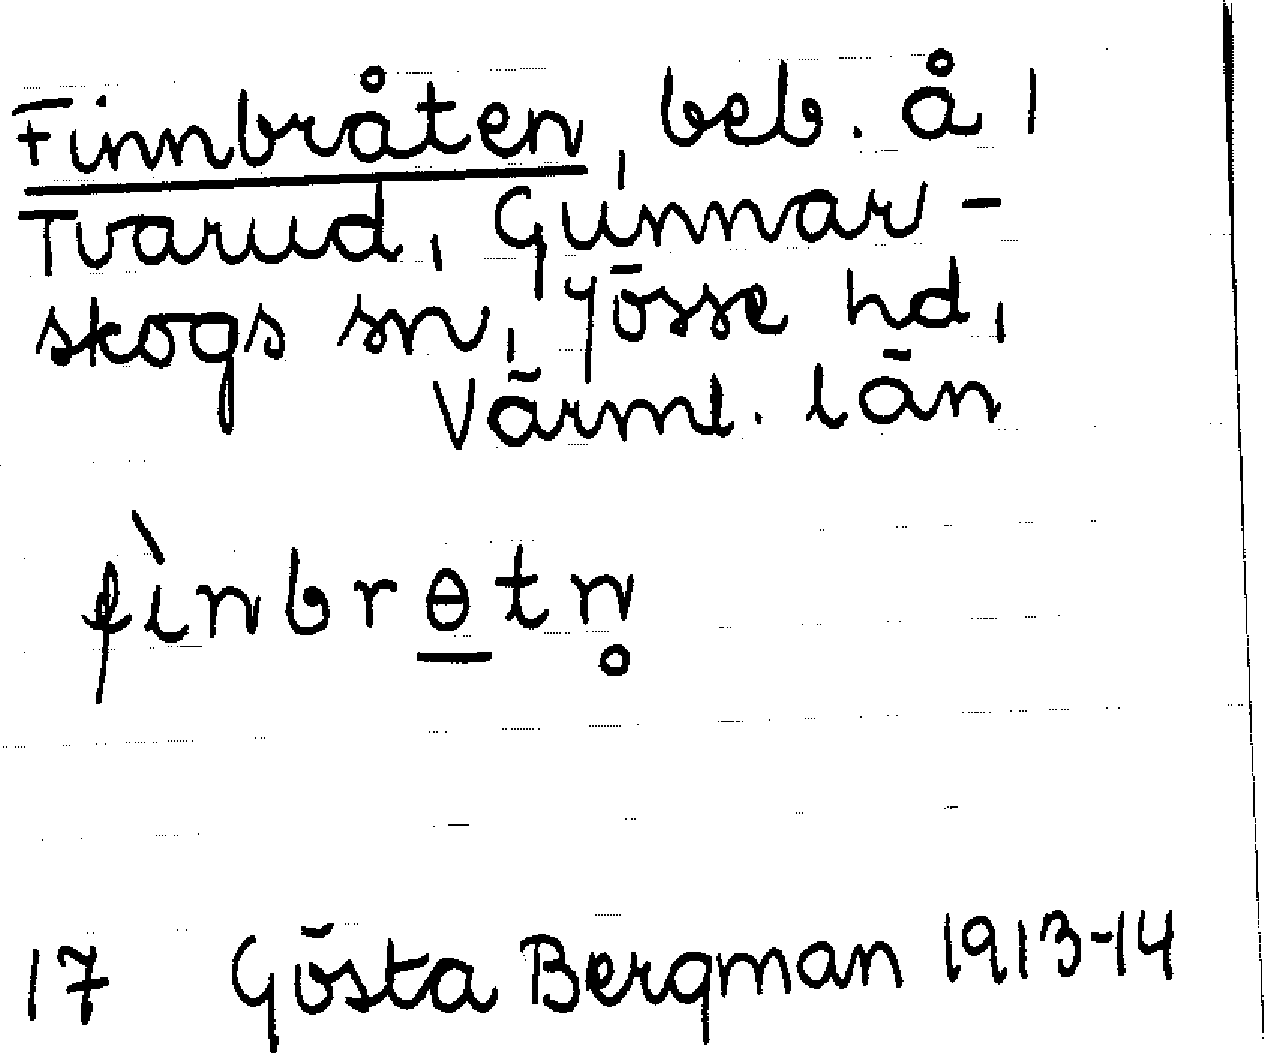 Finnbråten, beb. å 1
Tvarud, Gunnar-
skogs sn, Jösse hd,
Värml. län
fìnbrɵ̱tn̥
17 Gösta Bergman 1913-14